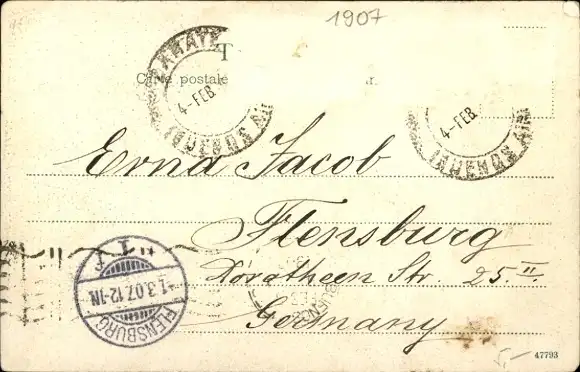 1907
T
Carte postale
ZARATE
4-FEB
(BUENOS AI
4-FEB
(BUENOS AI
Erna Jacob
Flensburg
Dorotheen Str. 25 II.
Germany
FLENSBURG
1.3.07.12-1N.
47793